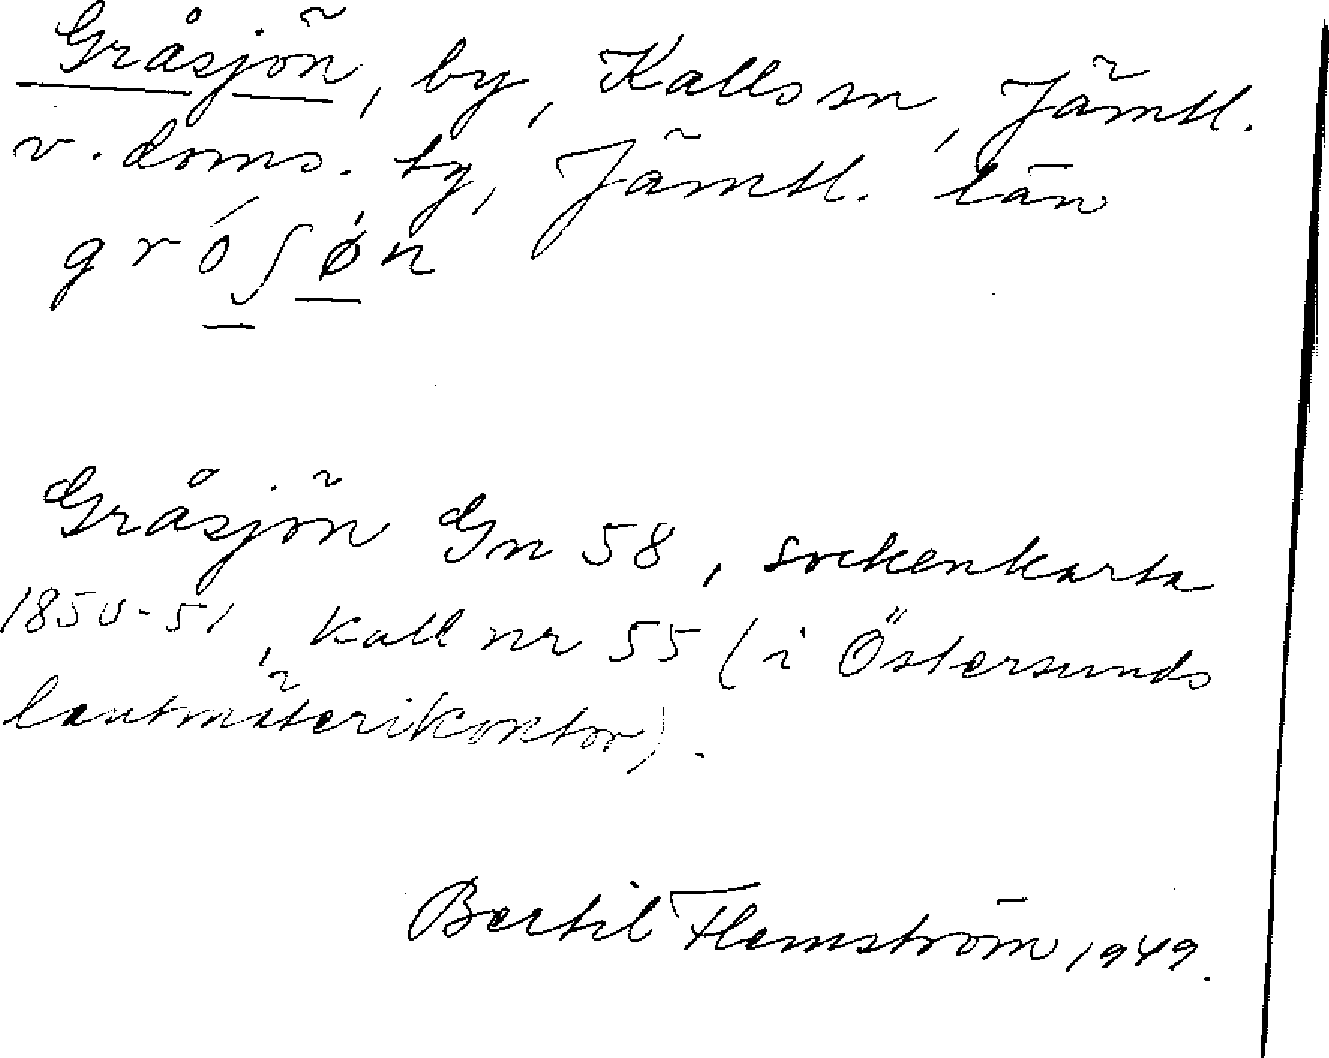 Gråsjön, by, Kalls sn, Jämtl.
v. doms. by, Jämtl. län
gró̱ʃǿ̱n
Gråsjön Gn 58, sockenkarta
1850-51, Kall nr 55 (i Östersunds
lantmäterikontor).
Bertil Flemström 1949.